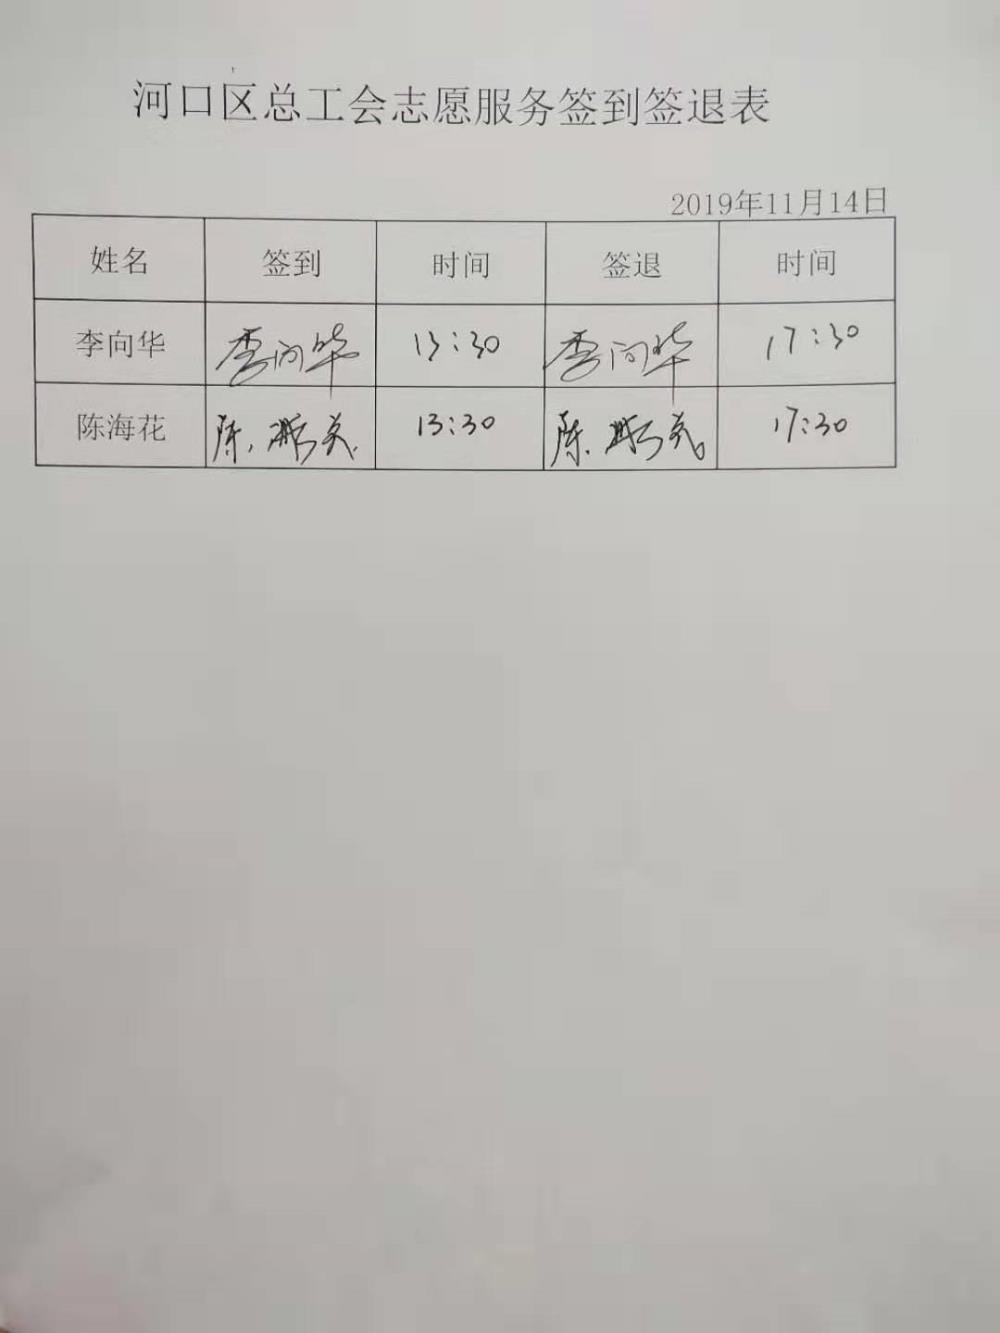 河口区总工会志愿服务签到签退表
2019年11月14日
姓名 签到 时间 签退 时间
李向华 李向华 13:30 李向华 17:30
陈海花 陈海花 13:30 陈海花 17:30